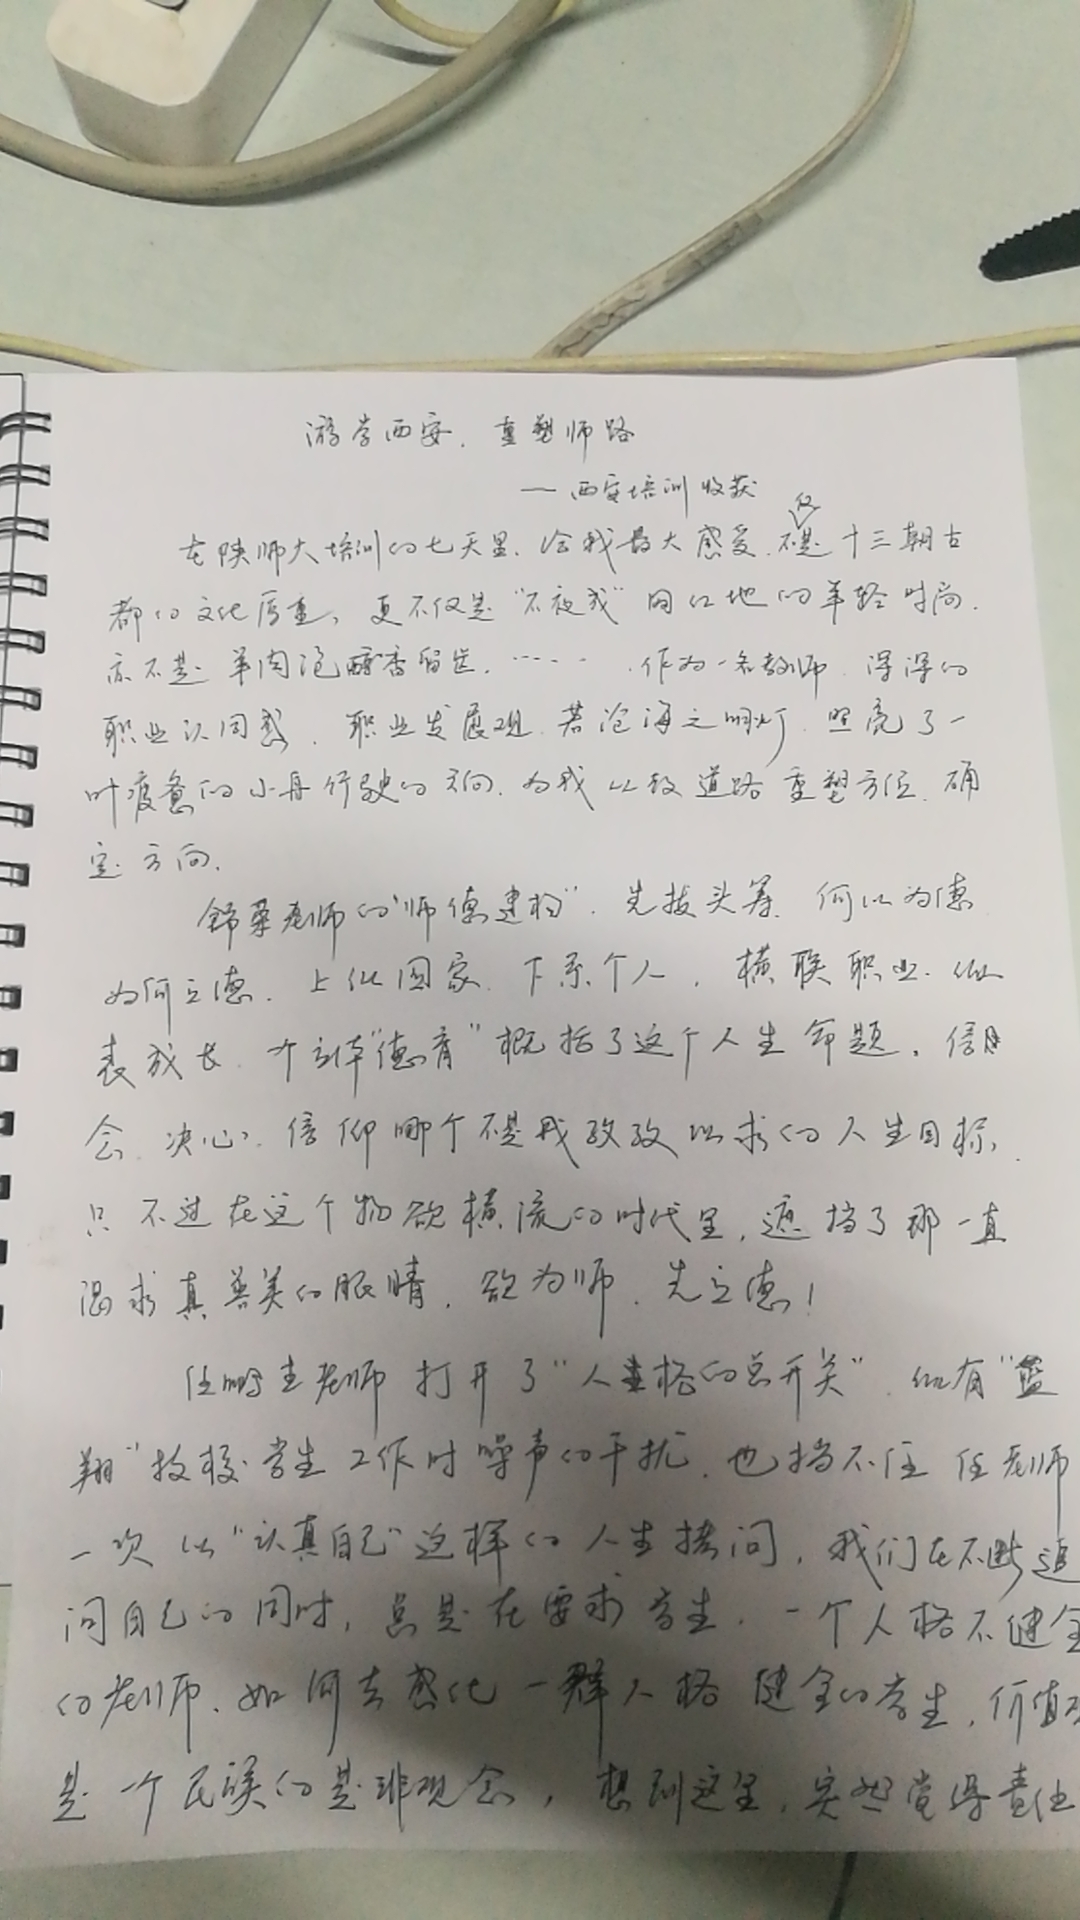 游学西安，重塑师路
—西安培训收获
在陕师大培训的七天里，给我最大感受，不仅是十三朝古
都的文化厚重，更不仅是“不夜城”网红地的年轻时尚，
亦不是羊肉泡醇香留齿，……作为一名教师，深深的
职业认同感，职业发展观，若沧海之明灯，照亮了一
叶疲惫的小舟行驶的方向，为我以教道路重塑方位，确
定方向。
老师的“师德建构”，先拔头筹，何以为德
为何立德，上从国家，下系个人，横联职业，纵
表成长，“德育”概括了这个人生命题，信
念，决心，信仰哪个不是我孜孜以求的人生目标，
只不过在这个物欲横流的时代里，遮挡了那一直
渴求真善美的眼睛，欲为师，先立德！
任鹏老师打开了“人格的总开关”，纵有“蓝
翔”技校学生工作时噪声的干扰，也挡不住任老师
一次以“认真自己”这样的人生拷问，我们在不断追
问自己的同时，总是在要求学生，一个人格不健全
的老师，如何去感化一群人格健全的学生，价值观
是一个民族的是非观念，想到这里，突然觉得责任